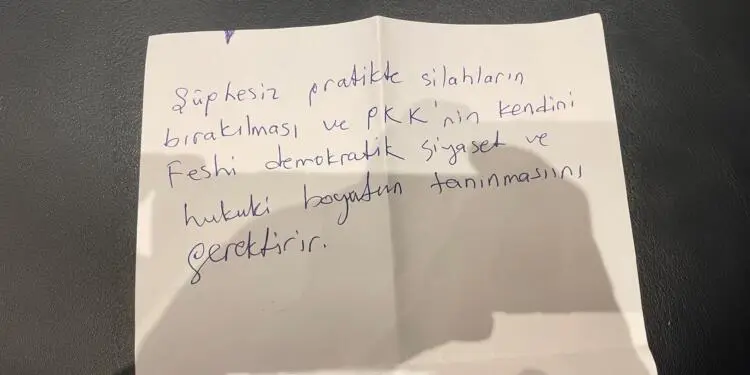 Şüphesiz pratikte silahların
bırakılması ve PKK'nin kendini
Feshi demokratik siyaset ve
hukuki boyutun tanınmasıını
gerektirir.